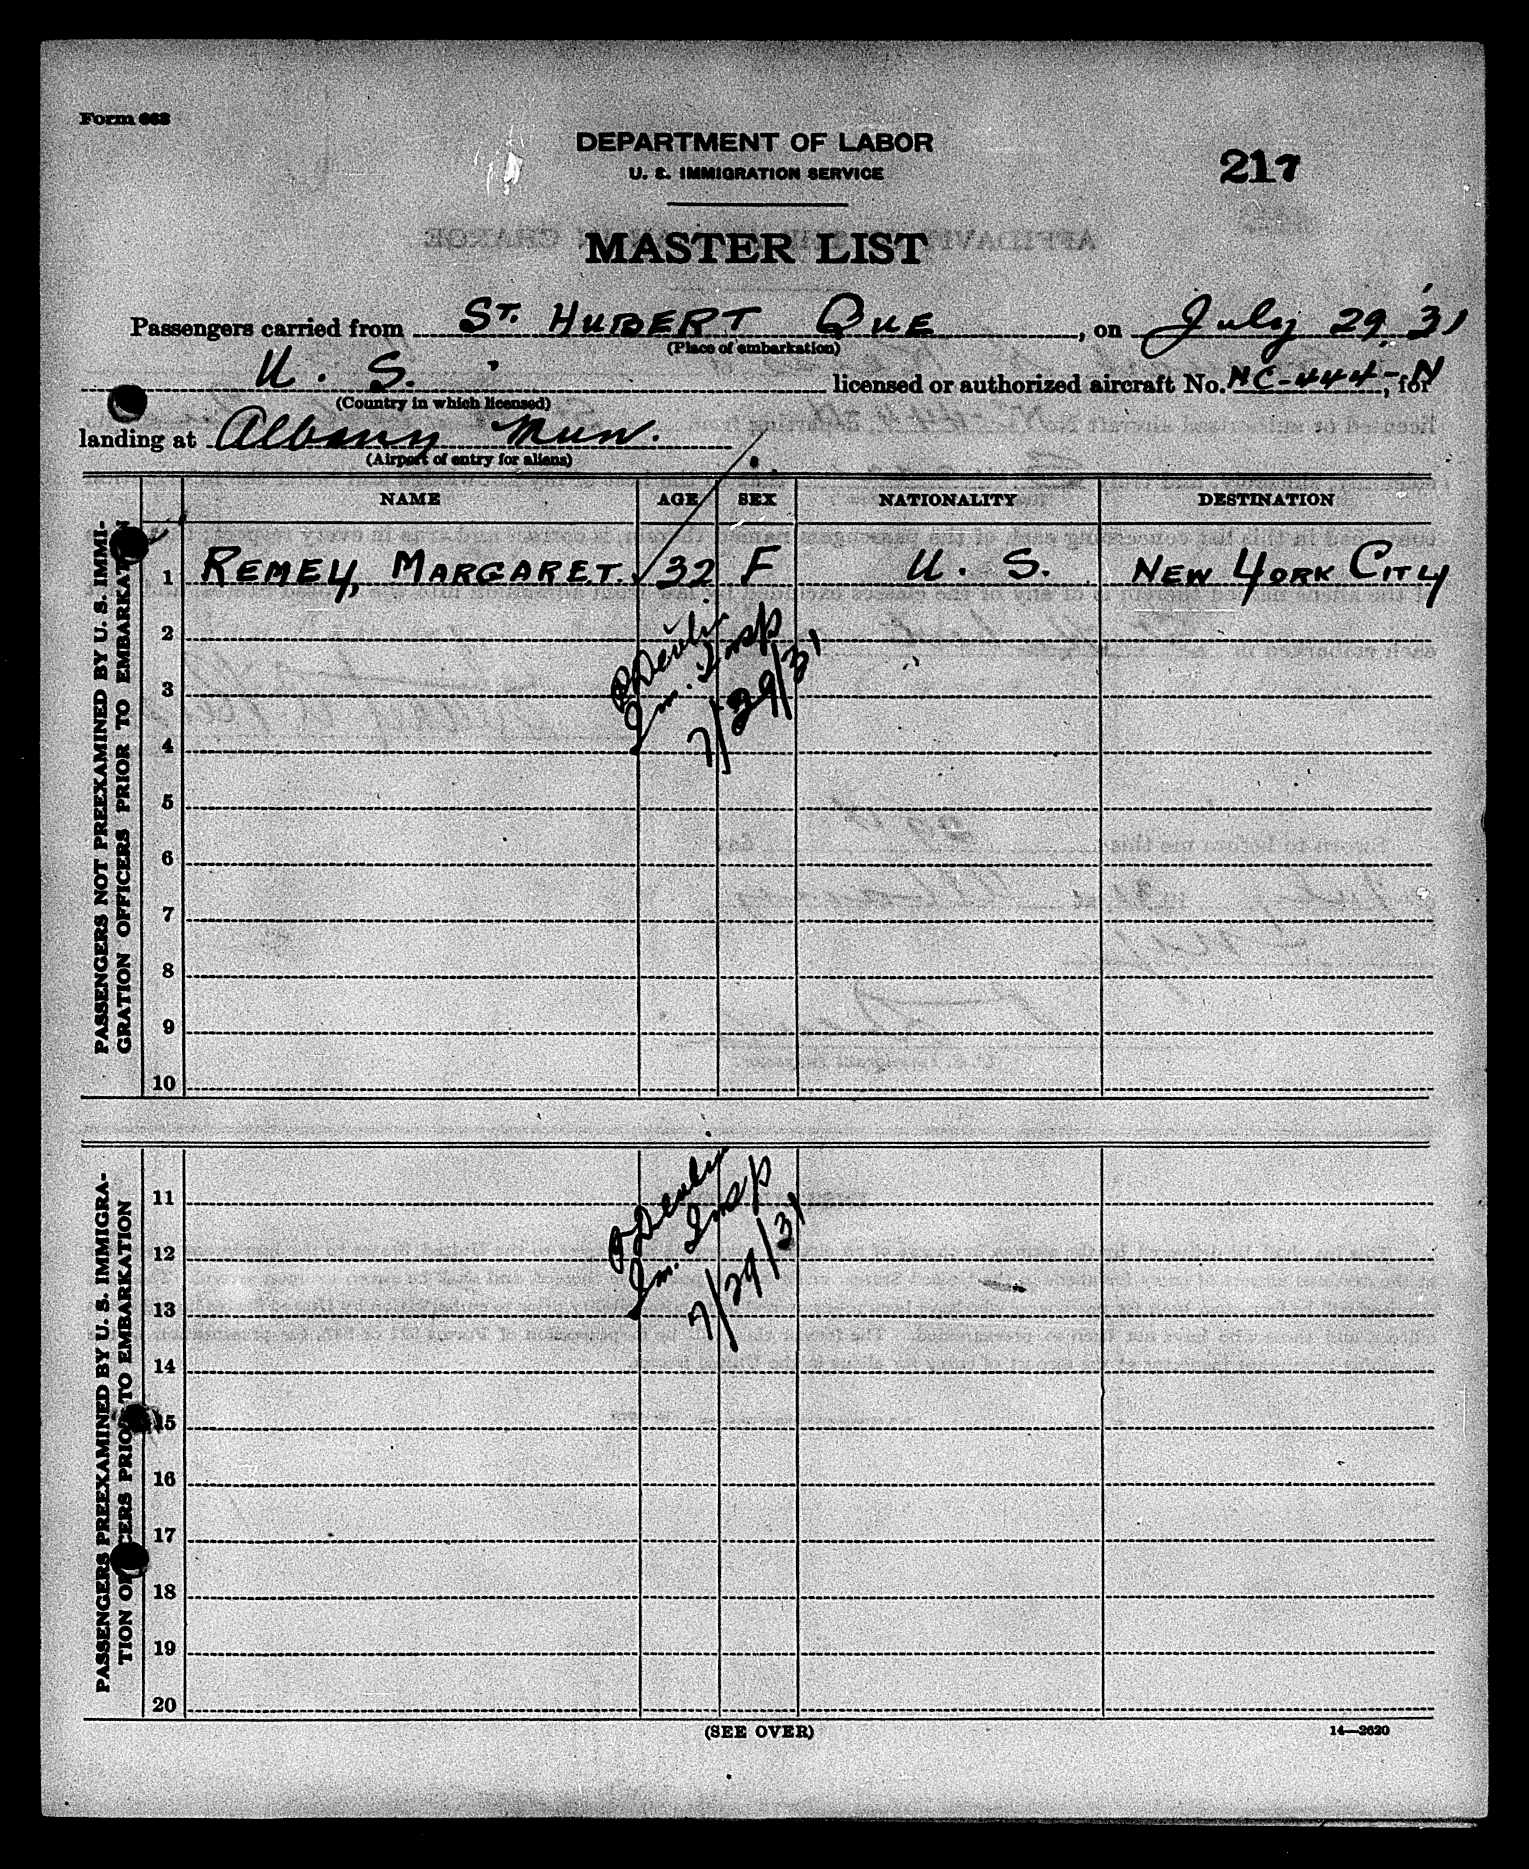 Form 663
DEPARTMENT OF LABOR
U. S. IMMIGRATION SERVICE
217
MASTER LIST
Passengers carried from ST. HUBERT QUE, on July 29, '31
(Place of embarkation)
U. S. licensed or authorized aircraft No. NC-444-N, for
(Country in which licensed)
landing at Albany Mun.
(Airport of entry for aliens)
NAME AGE SEX NATIONALITY DESTINATION
PASSENGERS NOT PREEXAMINED BY U. S. IMMI-
GRATION OFFICERS PRIOR TO EMBARKATION
1 REMEY, MARGARET. 32 F U. S. NEW YORK CITY
2
3
4
Devlin
Im. Insp
7/29/31
5
6
7
8
9
10
PASSENGERS PREEXAMINED BY U. S. IMMIGRA-
TION OFFICERS PRIOR TO EMBARKATION
11
12
13
Devlin
Im. Insp
7/29/31
14
15
16
17
18
19
20
(SEE OVER)
14—2620